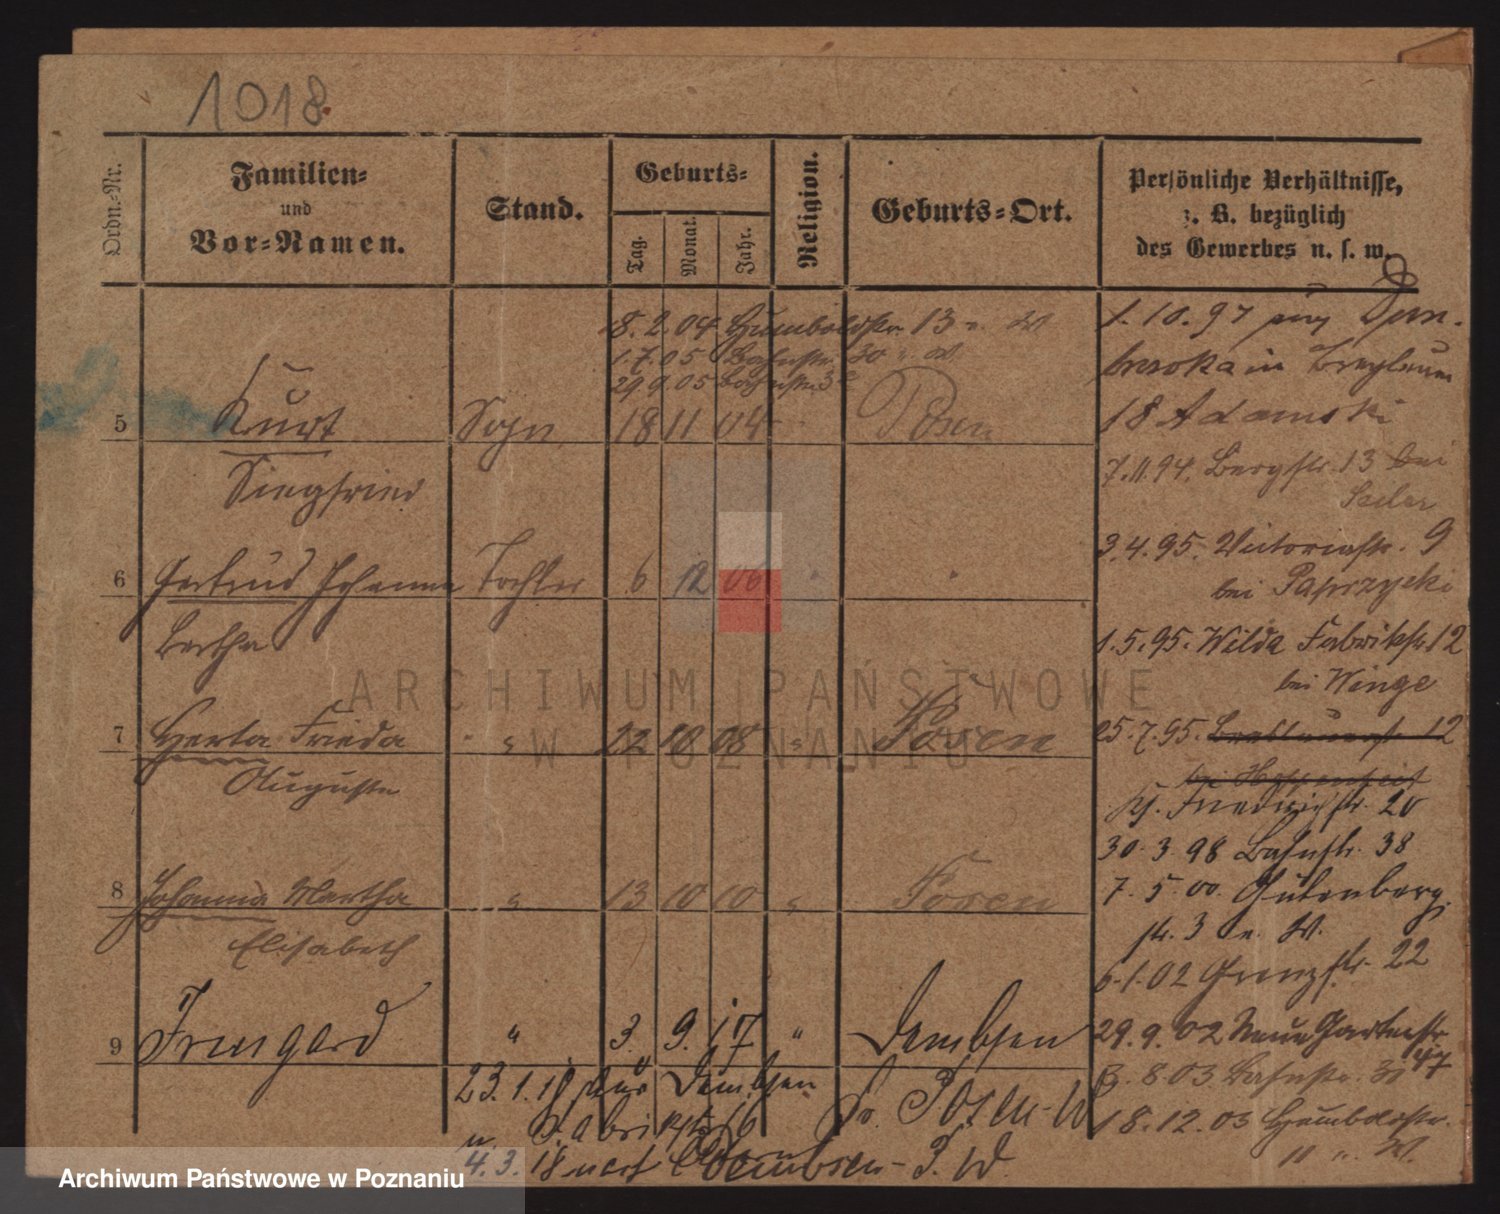 1018
Ordn.-Nr.
Familien-
und
Vor-Namen.
Stand.
Geburts-
Tag.
Monat.
Jahr.
Religion.
Geburts-Ort.
Persönliche Verhältnisse,
z. B. bezüglich
des Gewerbes u. s. w.
8. 2. 04 Humboldtstr. 13 n. W
1. 7. 05 Bahnstr. 30 n. W.
29 9 05 Bahnstr. 3
5 Kurt Sohn 18 11 04 Posen
Siegfried
6 Gertrud Johanna Tochter 6 12 06 "
Bertha
7 Herta Frieda " 22 10 08 " Posen
Auguste
8 Johanna Martha " 13 10 10 " Posen
Elisabeth
9 Irmgard " 3. 9. 17 " Dembsen
23. 1. 18 Dembsen
Fabrikstr. 16 Posen-W
4. 3. 18 nach Dembsen - P. W.
1. 10. 97
in
18 Adamski
7. 11. 94. Bergstr. 13 bei
3. 4. 95. Victoriastr. 9
bei Paprzycki
1. 5. 95. Wilda Fabrikstr 12
bei Winge
25. 7. 95. 12
Friedrichstr. 20
30. 3. 98 Bahnstr. 38
7. 5. 00. Gutenberg
str. 3 n. W.
6. 1. 02 Grenzstr. 22
29. 9. 02 Neue Gartenstr
47
3. 8. 03 Bahnstr. 30
18. 12. 03 Humboldtstr.
11 n. W.
ARCHIWUM PAŃSTWOWE
W POZNANIU
Archiwum Państwowe w Poznaniu